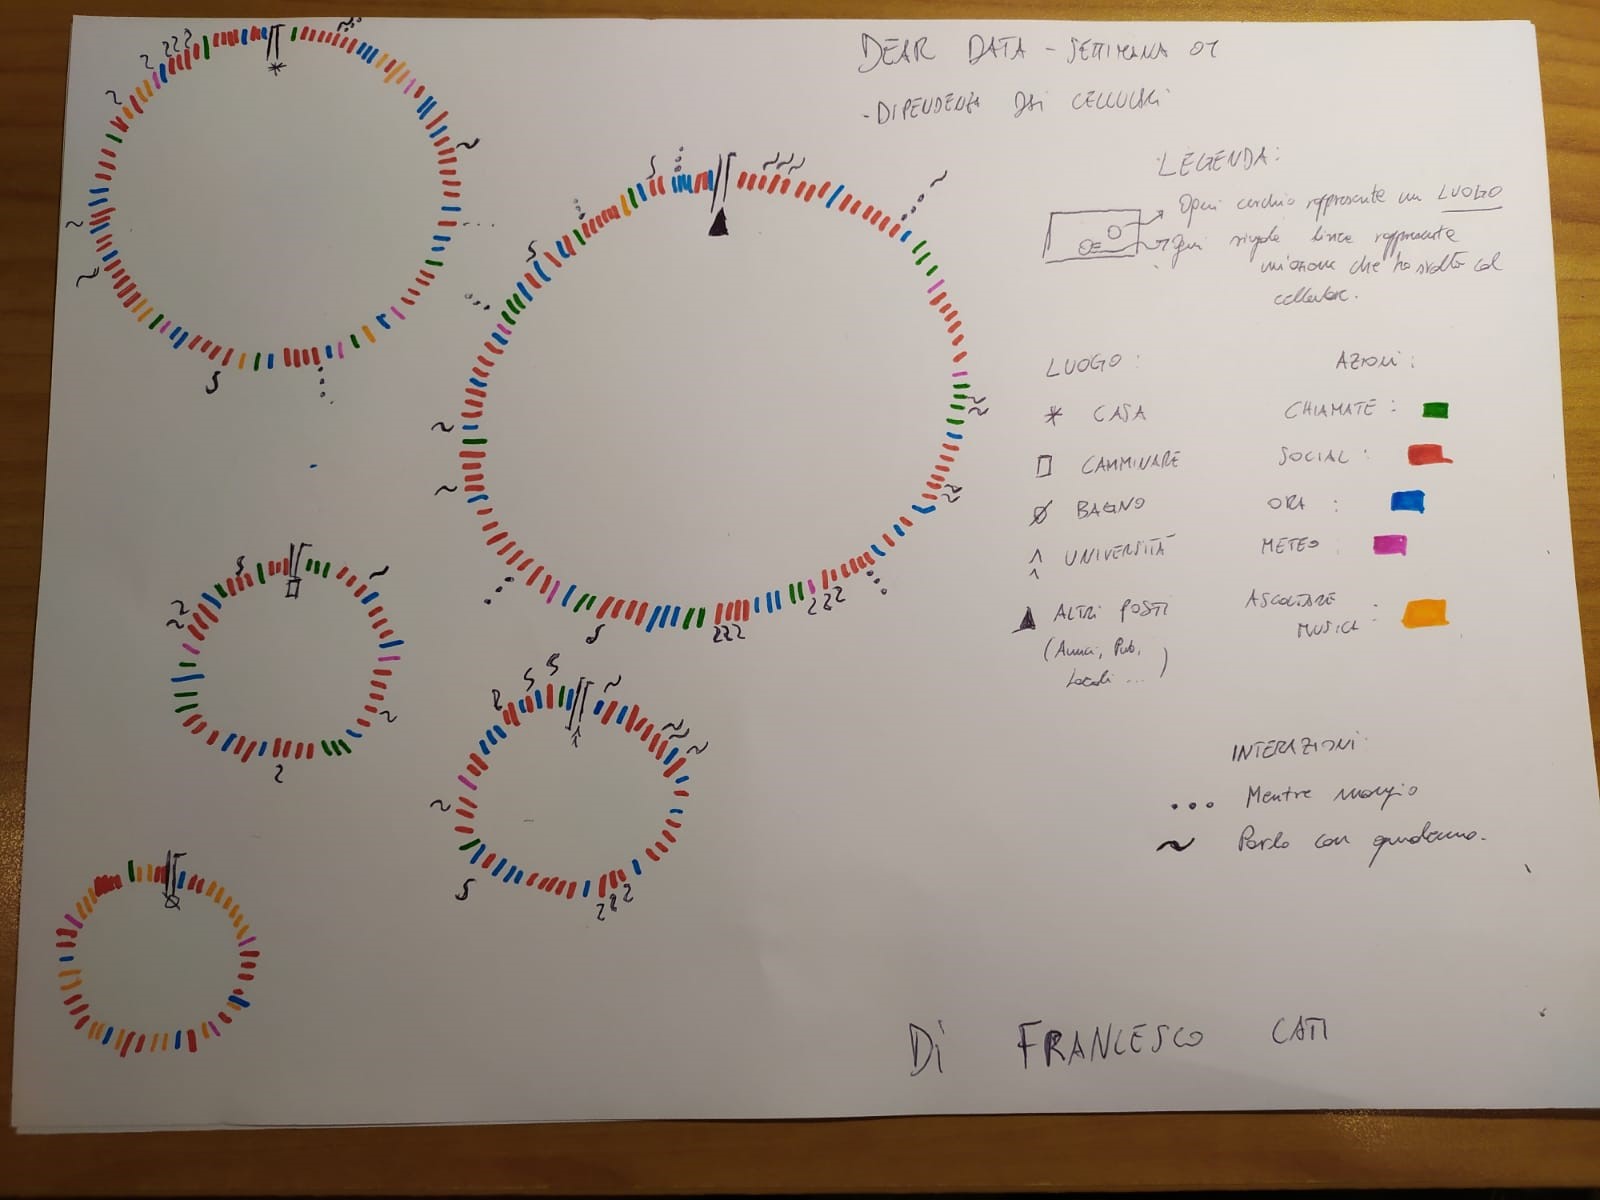 DEAR DATA - SETTIMANA 01
- DIPENDENZA DAI CELLULARI
LEGENDA:
Ogni cerchio rappresente un LUOGO
Ogni singola linea rappresenta
un'azione che ho svolto col
cellulare.
LUOGO:
CASA
CAMMINARE
BAGNO
UNIVERSITÀ
ALTRI POSTI
(Amici, Pub,
Locali ...)
AZIONI:
CHIAMATE:
SOCIAL:
ORA:
METEO:
ASCOLTARE
MUSICA:
INTERAZIONI:
... Mentre mangio
~ Parlo con qualcuno.
Di FRANCESCO CATI